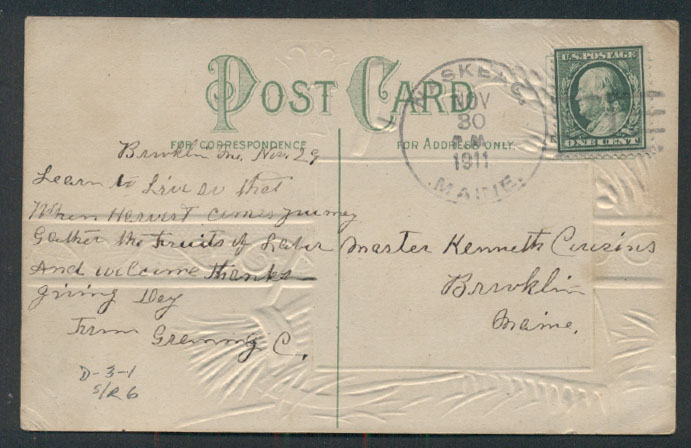 POST CARD
FOR CORRESPONDENCE
FOR ADDRESS ONLY.
NOV
30
A.M.
1911
MAINE.
U.S. POSTAGE
ONE CENT
Brooklin Me, Nov. 29
Learn to Live so that
When Harvest comes you may
Gather the Fruits of Labor
And welcome thanks
giving Day
From C.
Master Kenneth Cousins
Brooklin
Maine.
D-3-1
S/R6